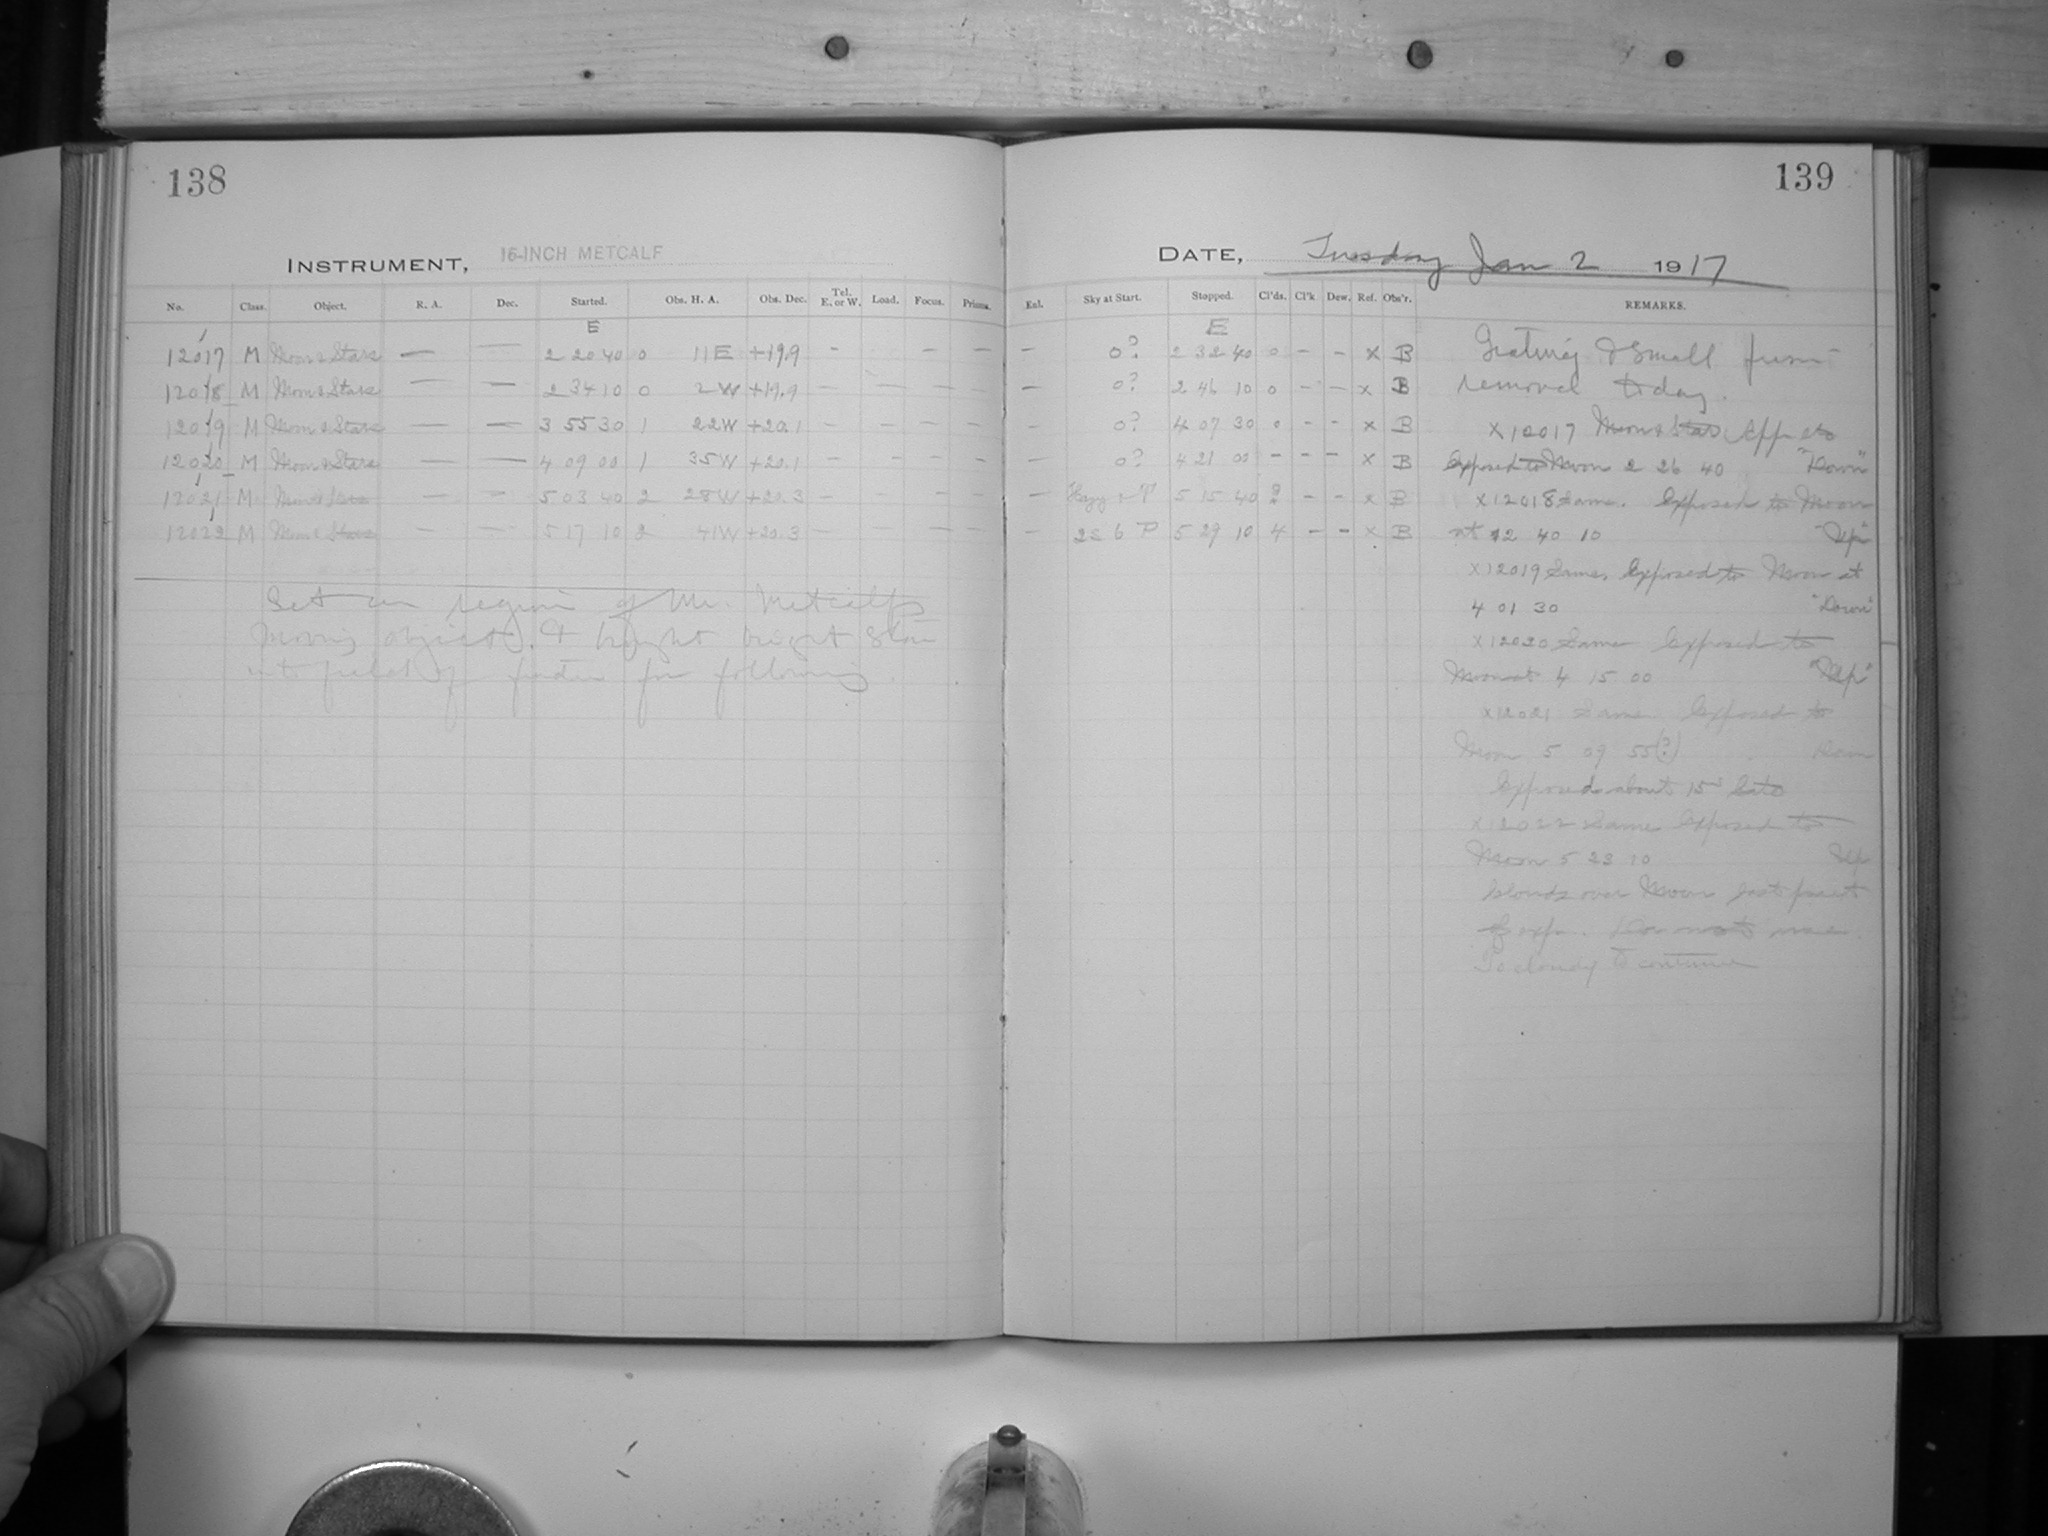 138
INSTRUMENT, 16-INCH METCALF
No. Class. Object. R. A. Dec. Started. Obs. H. A. Obs. Dec. Tel. E. or W. Load. Focus. Prisms.
E
12017 M Moon & Stars — — 2 20 40 0 11E +19.9 - - —
12018 M Moon & Stars — — 2 34 10 0 2W +19.9 — - — —
12019 M Moon & Stars — — 3 55 30 1 22W +20.1 - - — -
12020 M Moon & Stars — — 4 09 00 1 35W +20.1 - - — -
12021 M Moon & Stars — — 5 03 40 2 28W +20.3 — - - —
12022 M Moon & Stars — — 5 17 10 2 41W +20.3 — - — —
Set on region of Mr. Metcalf's
moving object. & bright star
into field of finder for following.
139
DATE, Tuesday Jan 2 1917
Enl. Sky at Start. Stopped. Cl'ds. Cl'k Dew. Ref. Obs'r. REMARKS.
E
— 0? 2 32 40 0 - - x B Grating & small prism
— 0? 2 46 10 0 - - x B removed today.
- 0? 4 07 30 0 - - x B x12017 Moon & Stars
0? 4 21 00 - - - x B Exposed to Moon 2 26 40 "Down"
— Hazy 5 15 40 ? - - x B x12018 Same. Exposed to Moon
— 5 29 10 4 - - x B at 2 40 10 "Up"
x12019 Same. Exposed to Moon at
4 01 30 "Down"
x12020 Same Exposed to
Moon at 4 15 00 "Up"
x12021 Same Exposed to
Moon 5 09 55(?) Down
Exposed about 15s late
x12022 Same Exposed to
Moon 5 23 10 Up
Clouds over Moon last part
of exp.
To cloudy to continue